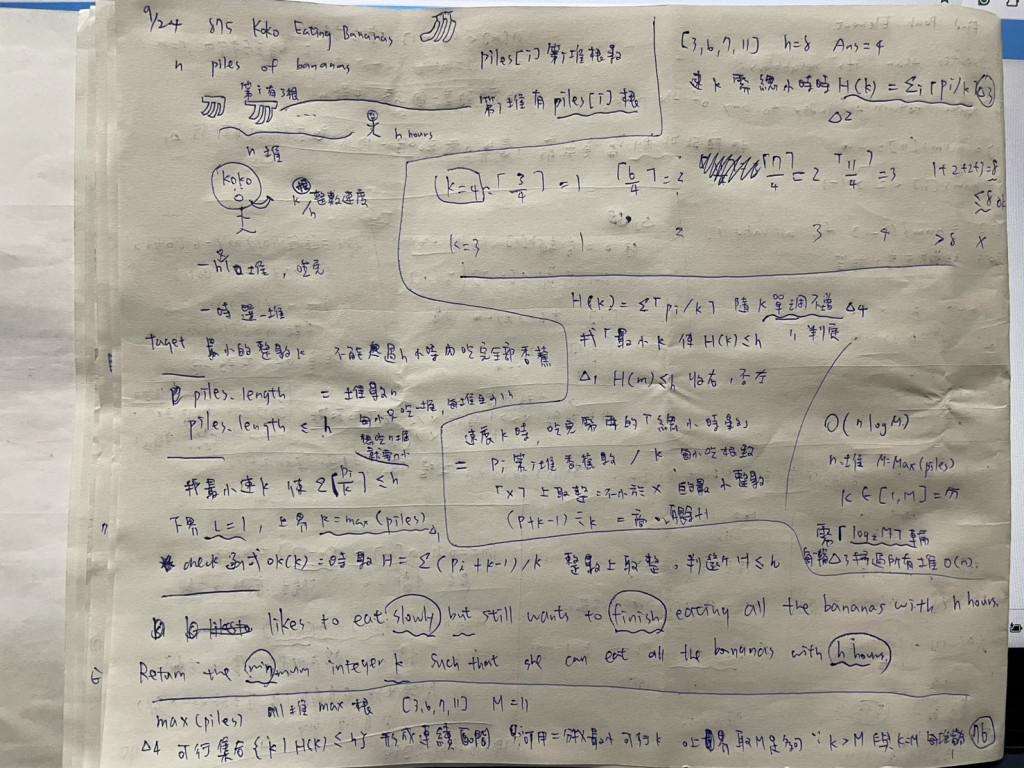 9/24 875 Koko Eating Bananas
n piles of bananas
piles[i] 第i堆根數
第i有3根
...
第i堆有piles[i]根
h hours
n堆
[3,6,7,11] h=8 Ans=4
速k需總小時時 H(k) = Σi⌈pi/k⌉ Δ3
Δ2
k=4 = ⌈3/4⌉ = 1 ⌈6/4⌉ = 2 ⌈7/4⌉ = 2 ⌈11/4⌉ = 3 1+2+2+3=8
≤8 ok
k=3 1 2 3 4 >8 x
koko
k 根/h 整數速度
一時選一堆
target 最小的整數k 不能超過h小時內吃完全部香蕉
piles.length = 堆數n
piles.length ≤ h
每小只吃一堆,
找最小速k 使 Σ⌈pi/k⌉ ≤ h
下界 L=1, 上界 R=max(piles)
H(k) = Σ⌈pi/k⌉ 隨k單調不增 Δ4
找「最小k 使 H(k)≤h 」判定
Δ1 H(m)≤h 收右, 否左
速度k時, 吃完需要的「總小時數」
= Pi 第i堆香蕉數 / k 每小吃根數
「x」上取整=不小於x的最小整數
(P+k-1)÷k =
O(n log M)
n堆 M=Max(piles)
k∈[1,M]=m
需「log2M」輪
每輪Δ3掃過所有堆O(n).
check函式 ok(k) = 時數 H = Σ(pi+k-1)/k 整數上取整, 判斷 H≤h
likes to eat slowly but still wants to finish eating all the bananas with h hours.
Return the minimum integer k such that she can eat all the bananas with h hours.
max(piles) 堆max根 [3,6,7,11] M=11
Δ4 可行集合{k|H(k)≤h} 形成連續區間 可用二分找最小可行k 上界取M足夠 ∵ k>M 與 k=M
76